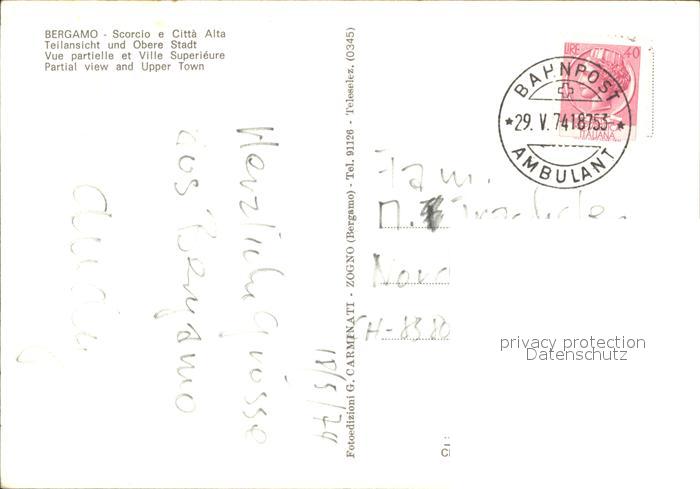 BERGAMO - Scorcio e Città Alta
Teilansicht und Obere Stadt
Vue partielle et Ville Superiéure
Partial view and Upper Town
Herzliche Grüsse
aus Bergamo
18/5/74
Fotoedizioni G. CARMINATI - ZOGNO (Bergamo) - Tel. 91126 - Teleselez. (0345)
LIRE 40
ITALIANA
BAHNPOST
29. V. 74 18753
AMBULANT
Fam.
Nord
CH-8580
privacy protection
Datenschutz